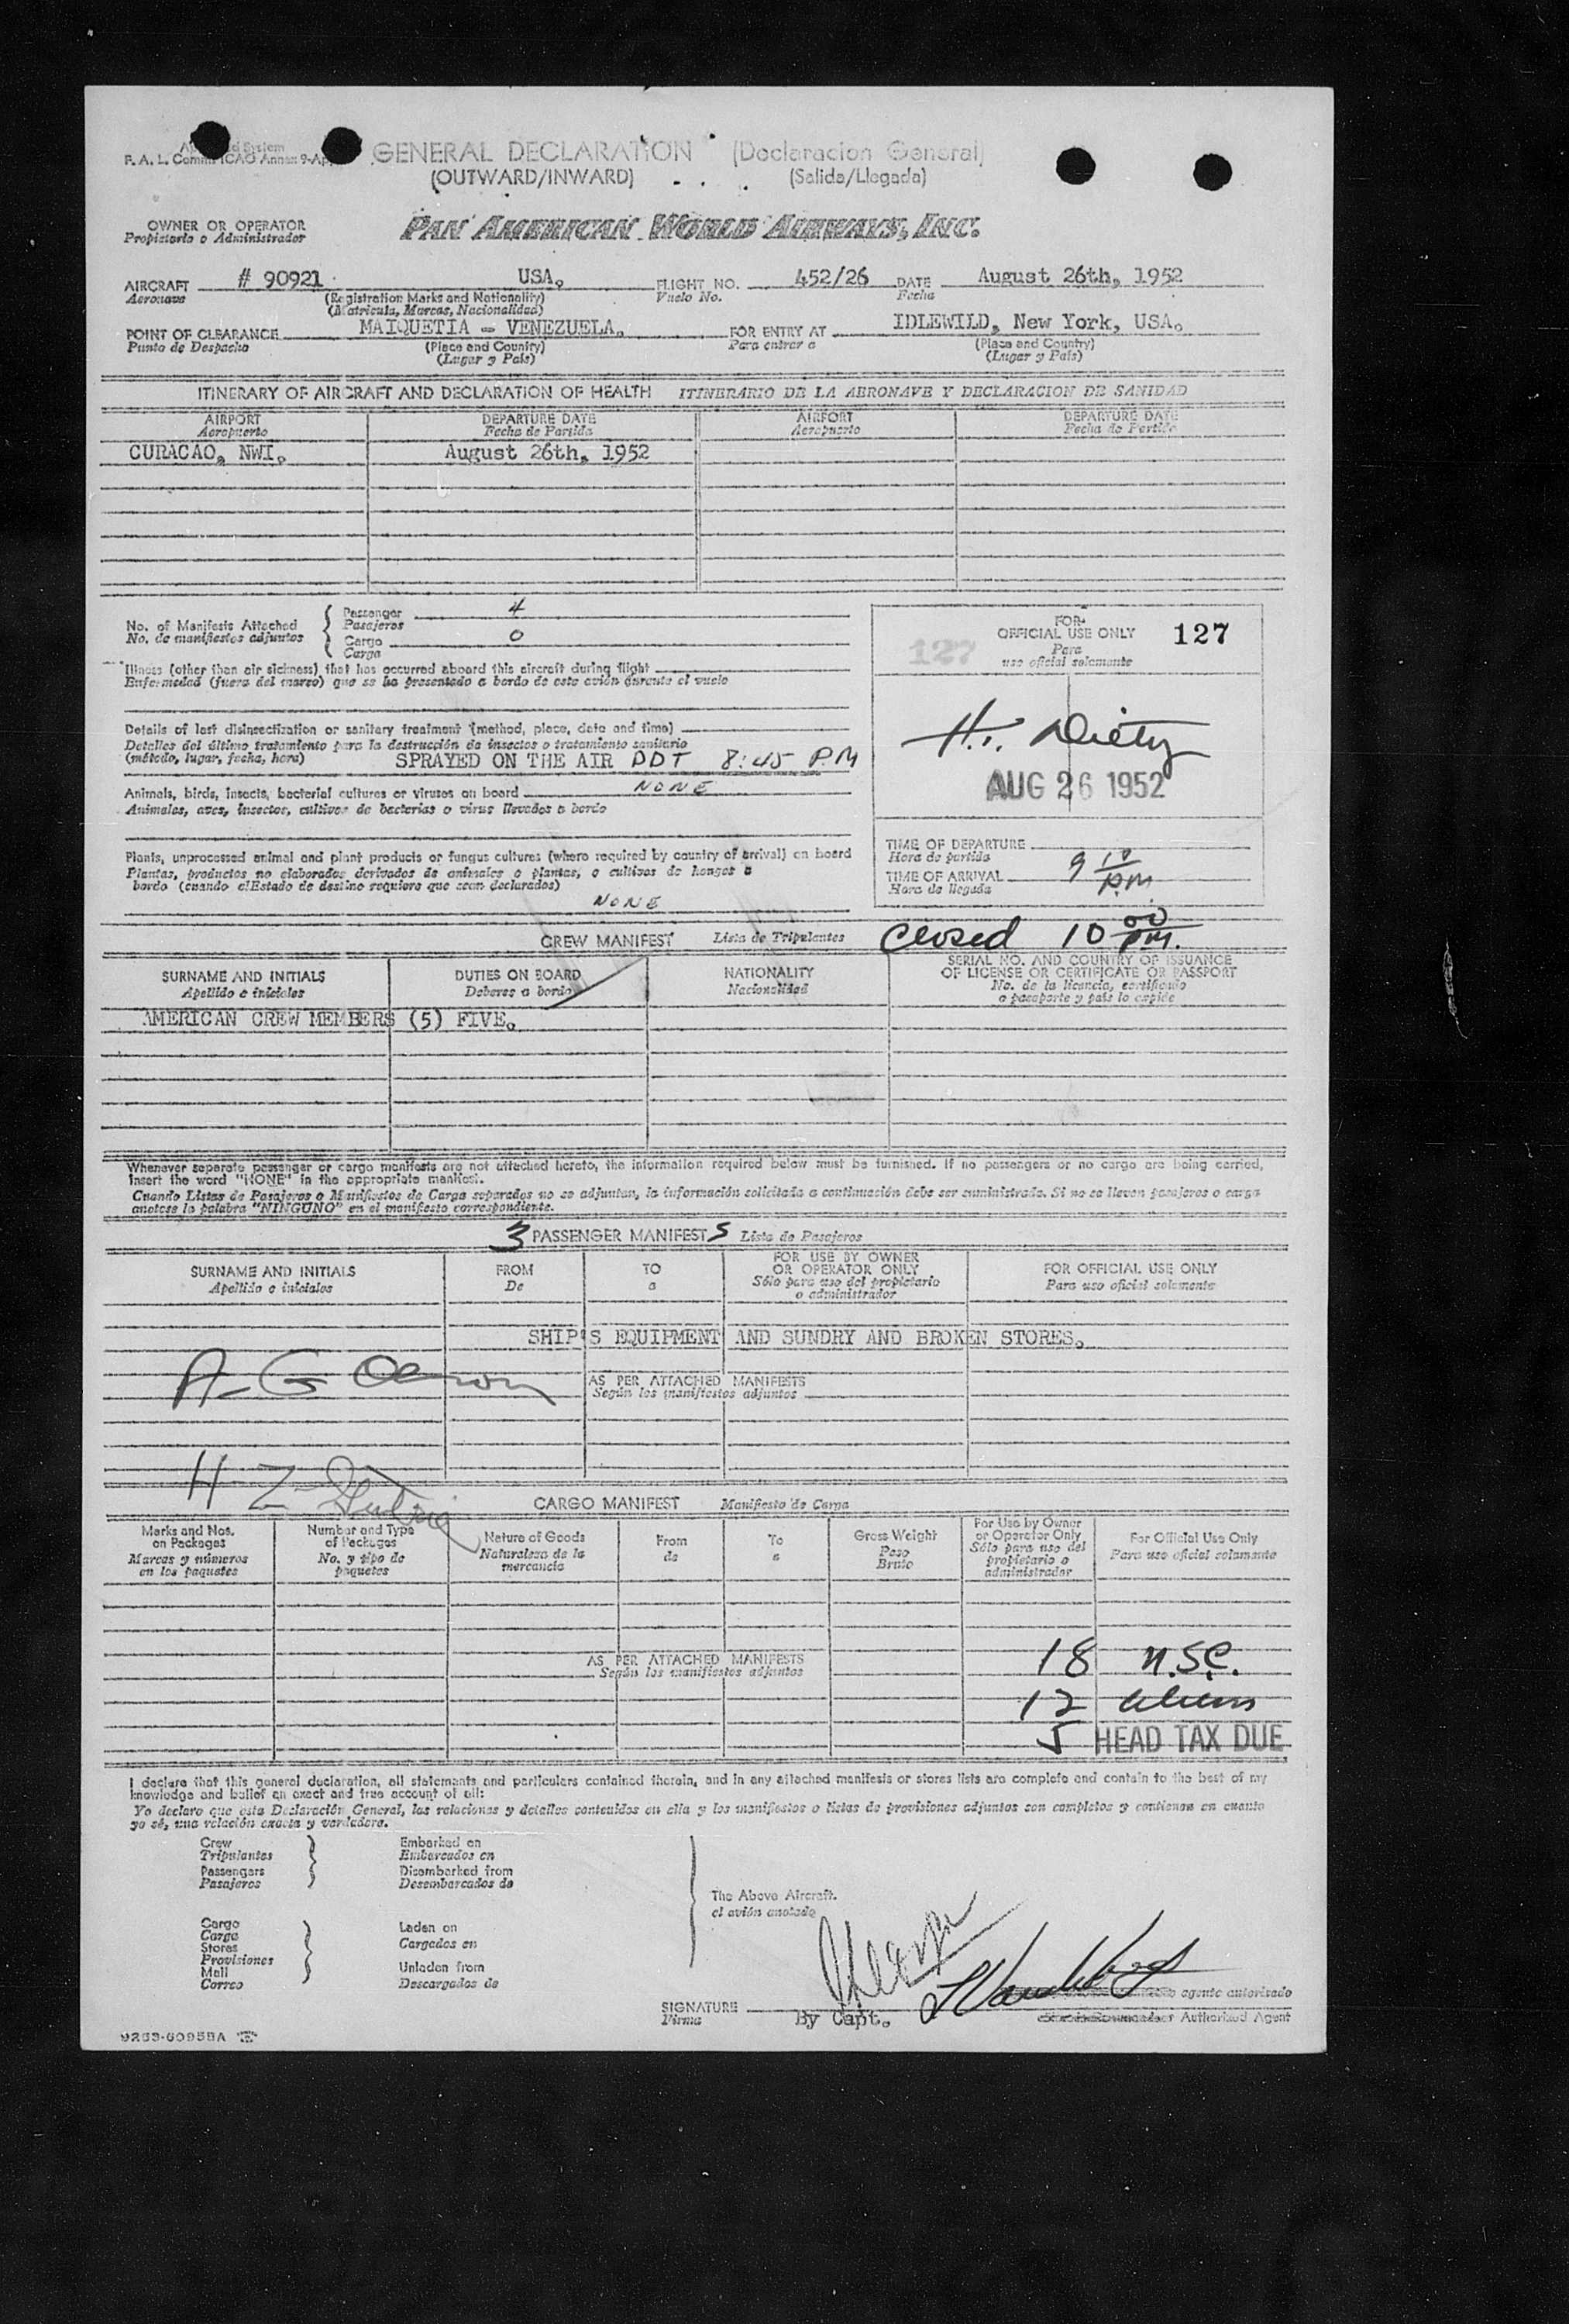 F. A. L. Comm ICAO Annex 9-Ap
GENERAL DECLARATION (Declaracion General)
(OUTWARD/INWARD) (Salida/Llegada)
OWNER OR OPERATOR
Propietario o Administrador
PAN AMERICAN WORLD AIRWAYS, INC.
AIRCRAFT # 90921 USA. FLIGHT NO. 452/26 DATE August 26th, 1952
Aeronave (Registration Marks and Nationality) Vuelo No. Fecha
(Matricula, Marcas, Nacionalidad)
POINT OF CLEARANCE MAIQUETIA - VENEZUELA. FOR ENTRY AT IDLEWILD, New York, USA.
Punto de Despacho (Place and Country) Para entrar a (Place and Country)
(Lugar y País) (Lugar y País)
ITINERARY OF AIRCRAFT AND DECLARATION OF HEALTH ITINERARIO DE LA AERONAVE Y DECLARACION DE SANIDAD
AIRPORT DEPARTURE DATE AIRPORT DEPARTURE DATE
Aeropuerto Fecha de Partida Aeropuerto Fecha de Partida
CURACAO, NWI. August 26th, 1952
No. of Manifests Attached
No. de manifiestos adjuntos
Passenger 4
Pasajeros
Cargo 0
Carga
Illness (other than air sickness) that has occurred aboard this aircraft during flight
Enfermedad (fuera del mareo) que se ha presentado a bordo de este avión durante el vuelo
Details of last disinsectization or sanitary treatment (method, place, date and time)
Detalles del último tratamiento para la destrucción de insectos o tratamiento sanitario
(método, lugar, fecha, hora) SPRAYED ON THE AIR DDT 8:45 P.M
Animals, birds, insects, bacterial cultures or viruses on board NONE
Animales, aves, insectos, cultivos de bacterias o virus llevados a bordo
Plants, unprocessed animal and plant products or fungus cultures (where required by country of arrival) on board
Plantas, productos no elaborados derivados de animales o plantas, o cultivos de hongos a
bordo (cuando elEstado de destino requiere que sean declarados)
NONE
FOR
OFFICIAL USE ONLY 127
127 Para
uso oficial solamente
H. Dietz
AUG 26 1952
TIME OF DEPARTURE
Hora de partida
TIME OF ARRIVAL 9 10 P.M.
Hora de llegada
CREW MANIFEST Lista de Tripulantes Closed 10 00 P.M.
SURNAME AND INITIALS DUTIES ON BOARD NATIONALITY SERIAL NO. AND COUNTRY OF ISSUANCE
Apellido e iniciales Deberes a bordo Nacionalidad OF LICENSE OR CERTIFICATE OR PASSPORT
No. de la licencia, certificado
o pasaporte y país lo expide
AMERICAN CREW MEMBERS (5) FIVE.
Whenever separate passenger or cargo manifests are not attached hereto, the information required below must be furnished. If no passengers or no cargo are being carried,
insert the word "NONE" in the appropriate manifest.
Cuando Listas de Pasajeros o Manifiestos de Carga separados no se adjuntan, la información solicitada a continuación debe ser suministrada. Si no se llevan pasajeros o carga
anotese la palabra "NINGUNO" en el manifiesto correspondiente.
3 PASSENGER MANIFEST S Lista de Pasajeros
SURNAME AND INITIALS FROM TO FOR USE BY OWNER OR OPERATOR ONLY FOR OFFICIAL USE ONLY
Apellido e iniciales De a Sólo para uso del propietario o administrador Para uso oficial solamente
SHIP'S EQUIPMENT AND SUNDRY AND BROKEN STORES.
A-G
AS PER ATTACHED MANIFESTS
Según los manifiestos adjuntos
H-Z
CARGO MANIFEST Manifiesto de Carga
Marks and Nos. on Packages Number and Type of Packages Nature of Goods From To Gross Weight For Use by Owner or Operator Only For Official Use Only
Marcas y números en los paquetes No. y tipo de paquetes Naturaleza de la mercancia de a Peso Bruto Sólo para uso del propietario o administrador Para uso oficial solamente
AS PER ATTACHED MANIFESTS 18 U.S.C.
Según los manifiestos adjuntos
12 aliens
5 HEAD TAX DUE
I declare that this general declaration, all statements and particulars contained therein, and in any attached manifests or stores lists are complete and contain to the best of my
knowledge and belief an exact and true account of all:
Yo declaro que esta Declaración General, las relaciones y detalles contenidos en ella y los manifiestos o listas de provisiones adjuntos son completos y contienen en cuanto
yo sé, una relación exacta y verdadera.
Crew Embarked on
Tripulantes Embarcados en
Passengers Disembarked from
Pasajeros Desembarcados de
The Above Aircraft.
el avión anotado
Cargo Laden on
Carga Cargados en
Stores
Provisiones
Mail Unladen from
Correo Descargados de
agente autorizado
SIGNATURE By Capt. Authorized Agent
Firma
9263-6095BA